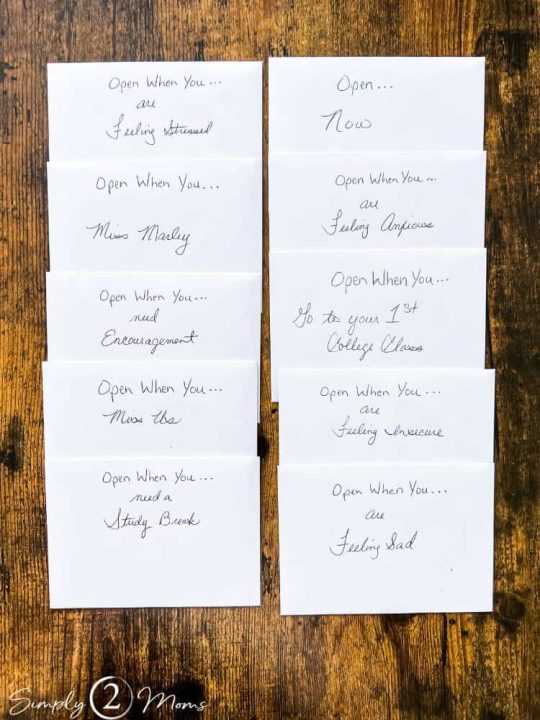 Open When You...
are
Feeling Stressed
Open When You...
Miss Marley
Open When You...
need
Encouragement
Open When You...
Miss Us
Open When You...
need a
Study Break
Open...
Now
Open When You...
are
Feeling Anxious
Open When You...
Go to your 1st
College Class
Open When You...
are
Feeling Insecure
Open When You...
are
Feeling Sad
Simply 2 Moms